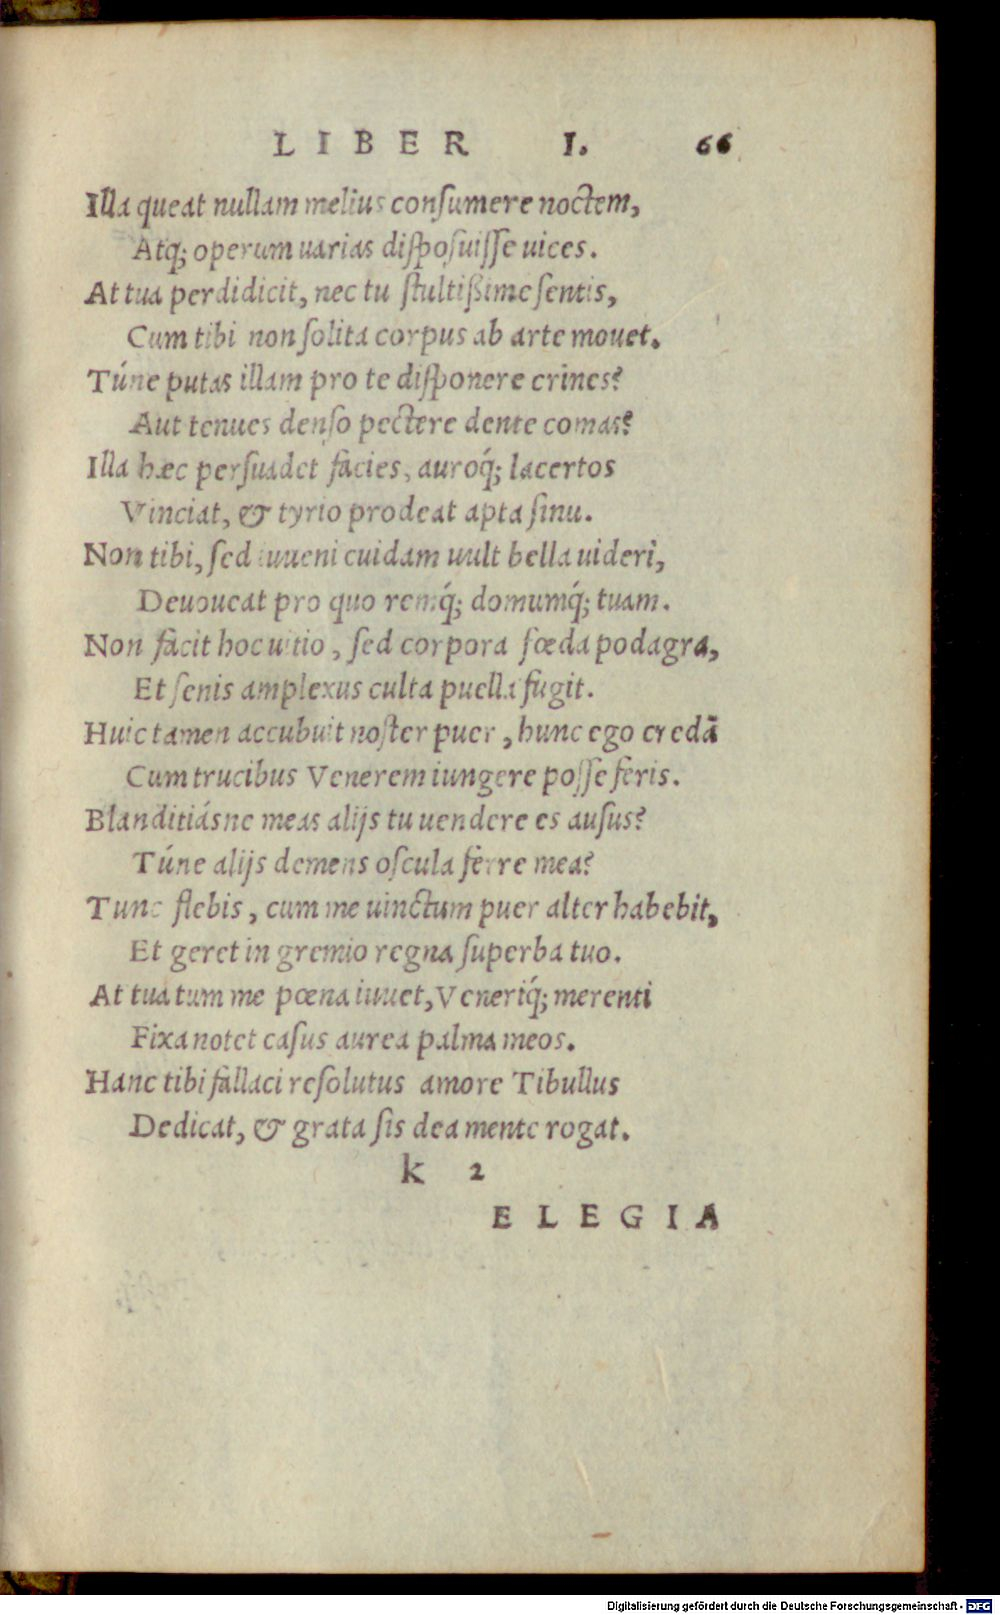 LIBER I. 66
Illa queat nullam melius conſumere noctem,
Atq; operum uarias diſpoſuiſſe uices.
At tua perdidicit, nec tu ſtultißime ſentis,
Cum tibi non ſolita corpus ab arte mouet.
Túne putas illam pro te diſponere crines?
Aut tenues denſo pectere dente comas?
Illa hæc perſuadet facies, auroq́; lacertos
Vinciat, & tyrio prodeat apta ſinu.
Non tibi, ſed iuueni cuidam uult bella uideri,
Deuoueat pro quo remq́; domumq́; tuam.
Non facit hoc uitio, ſed corpora fœda podagra,
Et ſenis amplexus culta puella fugit.
Huic tamen accubuit noſter puer, hunc ego credã
Cum trucibus Venerem iungere poſſe feris.
Blanditiásne meas alijs tu uendere es auſus?
Túne alijs demens oſcula ferre mea?
Tunc flebis, cum me uinctum puer alter habebit,
Et geret in gremio regna ſuperba tuo.
At tua tum me pœna iuuet, Veneriq́; merenti
Fixa notet caſus aurea palma meos.
Hanc tibi fallaci reſolutus amore Tibullus
Dedicat, & grata ſis dea mente rogat.
k 2
ELEGIA
Digitalisierung gefördert durch die Deutsche Forschungsgemeinschaft - DFG